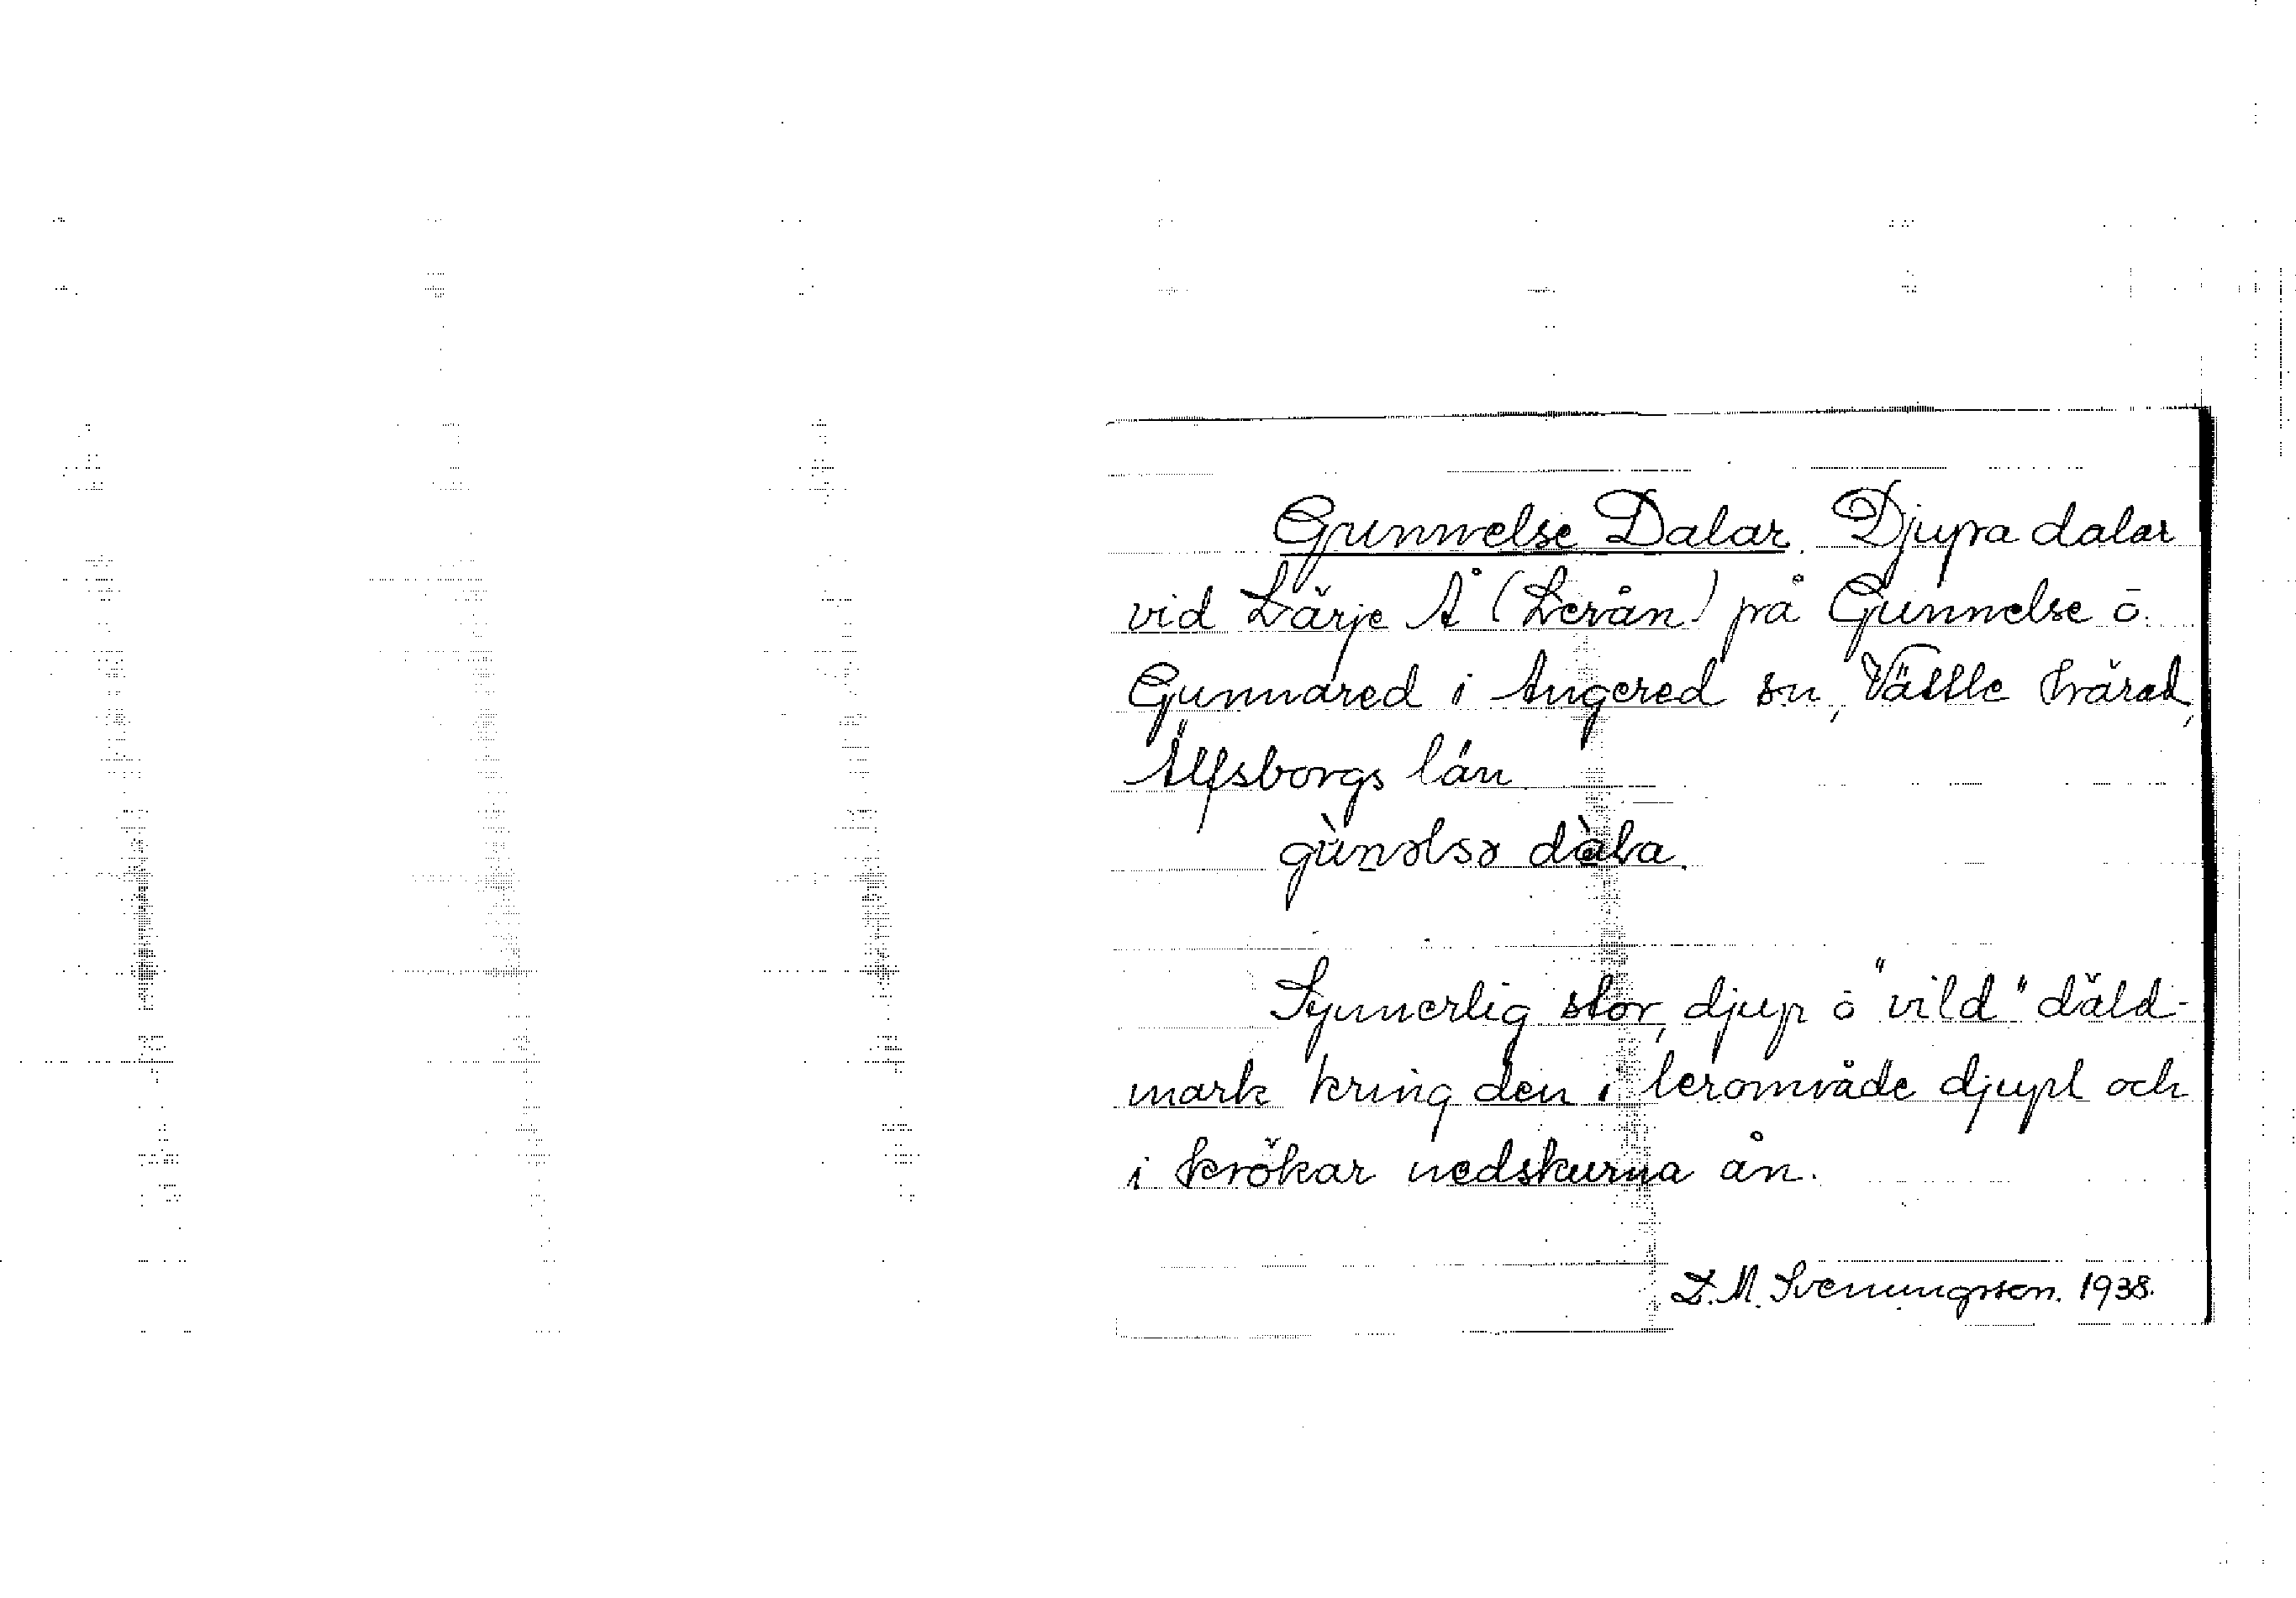 Gunnelse Dalar. Djupa dalar
vid Lärje Å (Lerån) på Gunnelse ō.
Gunnared i Angered sn, Vättle härad,
Älfsborgs län.
gùnəlsə dàla.
Synnerlig stor, djup ō "vild" däld-
mark kring den i lerområde djupt och
i krökar nedskurna ån.
D. M. Svenungsson. 1938.